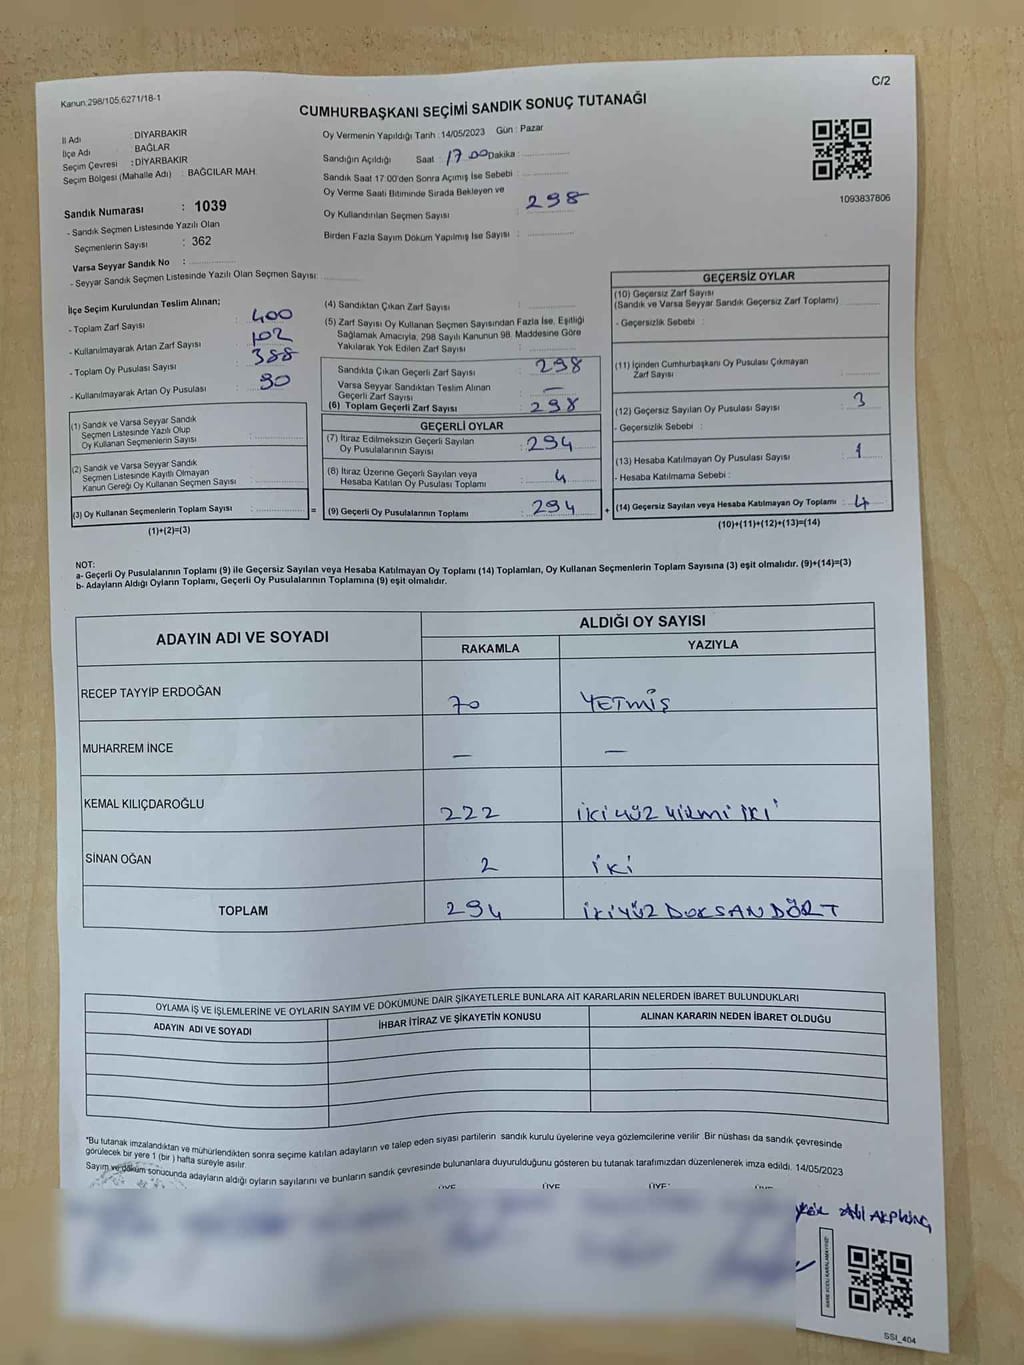 Kanun:298/105,6271/18-1
C/2
CUMHURBAŞKANI SEÇİMİ SANDIK SONUÇ TUTANAĞI
İl Adı : DİYARBAKIR
İlçe Adı : BAĞLAR
Seçim Çevresi : DİYARBAKIR
Seçim Bölgesi (Mahalle Adı) : BAĞCILAR MAH.
Sandık Numarası : 1039
- Sandık Seçmen Listesinde Yazılı Olan
Seçmenlerin Sayısı : 362
Varsa Seyyar Sandık No :
- Seyyar Sandık Seçmen Listesinde Yazılı Olan Seçmen Sayısı:
Oy Vermenin Yapıldığı Tarih : 14/05/2023 Gün : Pazar
Sandığın Açıldığı Saat : 17 00 Dakika :
Sandık Saat 17:00'den Sonra Açımış İse Sebebi :
Oy Verme Saati Bitiminde Sırada Bekleyen ve
Oy Kullandırılan Seçmen Sayısı : 298
Birden Fazla Sayım Döküm Yapılmış İse Sayısı :
1093837806
İlçe Seçim Kurulundan Teslim Alınan;
- Toplam Zarf Sayısı : 400
- Kullanılmayarak Artan Zarf Sayısı : 102
- Toplam Oy Pusulası Sayısı : 388
- Kullanılmayarak Artan Oy Pusulası : 90
(1) Sandık ve Varsa Seyyar Sandık
Seçmen Listesinde Yazılı Olup
Oy Kullanan Seçmenlerin Sayısı :
(2) Sandık ve Varsa Seyyar Sandık
Seçmen Listesinde Kayıtlı Olmayan
Kanun Gereği Oy Kullanan Seçmen Sayısı :
(3) Oy Kullanan Seçmenlerin Toplam Sayısı : =
(1)+(2)=(3)
(4) Sandıktan Çıkan Zarf Sayısı :
(5) Zarf Sayısı Oy Kullanan Seçmen Sayısından Fazla İse, Eşitliği
Sağlamak Amacıyla, 298 Sayılı Kanunun 98. Maddesine Göre
Yakılarak Yok Edilen Zarf Sayısı :
Sandıkta Çıkan Geçerli Zarf Sayısı : 298
Varsa Seyyar Sandıktan Teslim Alınan
Geçerli Zarf Sayısı : —
(6) Toplam Geçerli Zarf Sayısı : 298
GEÇERLİ OYLAR
(7) İtiraz Edilmeksizin Geçerli Sayılan
Oy Pusulasının Sayısı : 294
(8) İtiraz Üzerine Geçerli Sayılan veya
Hesaba Katılan Oy Pusulası Toplamı : 4
(9) Geçerli Oy Pusulalarının Toplamı : 294 +
GEÇERSİZ OYLAR
(10) Geçersiz Zarf Sayısı
(Sandık ve Varsa Seyyar Sandık Geçersiz Zarf Toplamı)
- Geçersizlik Sebebi :
(11) İçinden Cumhurbaşkanı Oy Pusulası Çıkmayan
Zarf Sayısı :
(12) Geçersiz Sayılan Oy Pusulası Sayısı : 3
- Geçersizlik Sebebi :
(13) Hesaba Katılmayan Oy Pusulası Sayısı : 1
- Hesaba Katılmama Sebebi :
(14) Geçersiz Sayılan veya Hesaba Katılmayan Oy Toplamı : 4
(10)+(11)+(12)+(13)=(14)
NOT:
a- Geçerli Oy Pusulalarının Toplamı (9) ile Geçersiz Sayılan veya Hesaba Katılmayan Oy Toplamı (14) Toplamları, Oy Kullanan Seçmenlerin Toplam Sayısına (3) eşit olmalıdır. (9)+(14)=(3)
b- Adayların Aldığı Oyların Toplamı, Geçerli Oy Pusulalarının Toplamına (9) eşit olmalıdır.
ADAYIN ADI VE SOYADI ALDIĞI OY SAYISI
RAKAMLA YAZIYLA
RECEP TAYYİP ERDOĞAN 70 YETMİŞ
MUHARREM İNCE — —
KEMAL KILIÇDAROĞLU 222 İKİ YÜZ YİRMİ İKİ
SİNAN OĞAN 2 İKİ
TOPLAM 294 İKİYÜZ DOKSAN DÖRT
OYLAMA İŞ VE İŞLEMLERİNE VE OYLARIN SAYIM VE DÖKÜMÜNE DAİR ŞİKAYETLERLE BUNLARA AİT KARARLARIN NELERDEN İBARET BULUNDUKLARI
ADAYIN ADI VE SOYADI İHBAR İTİRAZ VE ŞİKAYETİN KONUSU ALINAN KARARIN NEDEN İBARET OLDUĞU
*Bu tutanak imzalandıktan ve mühürlendikten sonra seçime katılan adayların ve talep eden siyasi partilerin sandık kurulu üyelerine veya gözlemcilerine verilir. Bir nüshası da sandık çevresinde
görülecek bir yere 1 (bir ) hafta süreyle asılır.
Sayım ve döküm sonucunda adayların aldığı oyların sayılarını ve bunların sandık çevresinde bulunanlara duyurulduğunu gösteren bu tutanak tarafımızdan düzenlenerek imza edildi. 14/05/2023
ÜYE ÜYE ÜYE
SSI_404